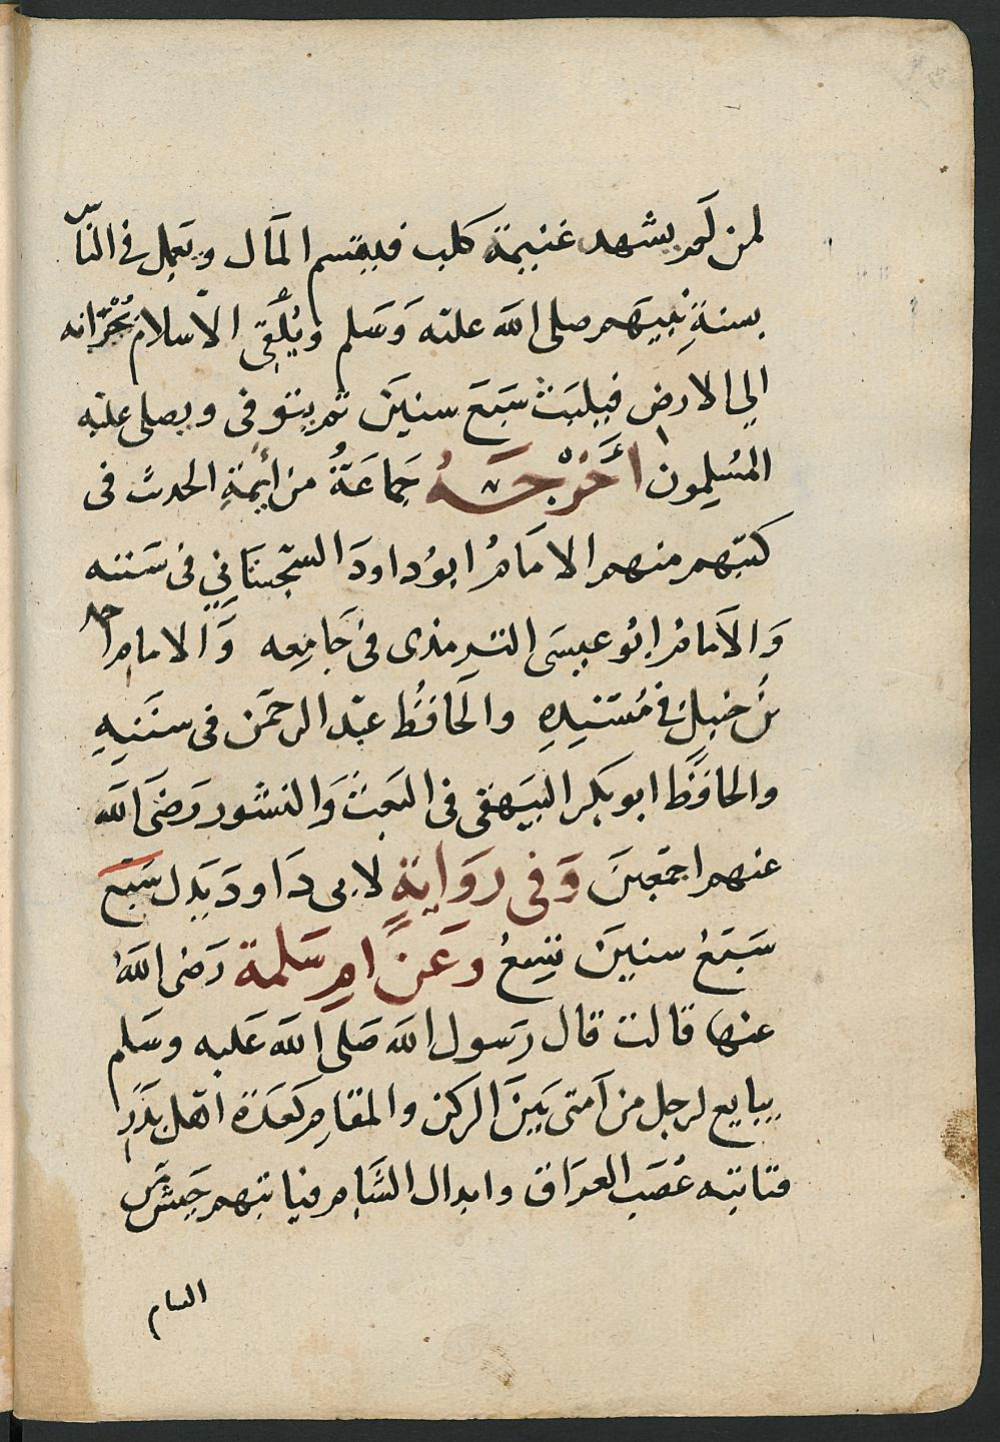 لمن لَم يشهد غنيمة كلب فيقسم المَال ويعمل في النّاس
بسنةِ نبيهَم صلى الله عليه وَسَلم وَيُلْقِى الاسلام بجرّانه
الي الارض فيلبَث سَبَعَ سنينَ ثم يتوفى ويصلى عليه
المسُلِمون اَخْرَجَهُ جَماعَةُ من أيمةِ الحديث فى
كتبهم منهم الامَامُ ابوُداودَ السّجستَانيِ فى سَننه
وَالاَمامُ ابُو عيسَى الترمذى فى جَامِعه وَالامام احمد
بنُ حنبل في مُسَنيدِهِ والحَافظُ عبّد الرحمَن فى سنَنِهِ
والحافظَ ابو بكر البيَهقى فى البَعِث وَالنشور رَضىَ الله
عنهم اجمَعِينَ وَفى رِوَايةٍ لابى دَاودَ بَدل سَبَع
سَبَعْ سنينَ تِسعُ وَعَن امِ سَلمة رَضى اللهُ
عنها قالت قال رَسول الله صَلى الله عَليه وسَلم
يبايع لرجل من اَمتى بَينَ الركن والمقامِ كَعَدة اهَل بدَرٍ
فتاتيه عُصَب العرَاق وابدال الشَامِ فياتيهم جَيش مَن
الشام